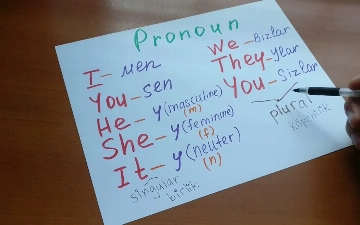 Pronoun
I - men
You - sen
He - y (masculine)
(m)
She - y (feminine)
(f)
It - y (neuter)
(n)
singular
birlik
We - Bizlar
They - Ular
You - Sizlar
plural
ko'plik